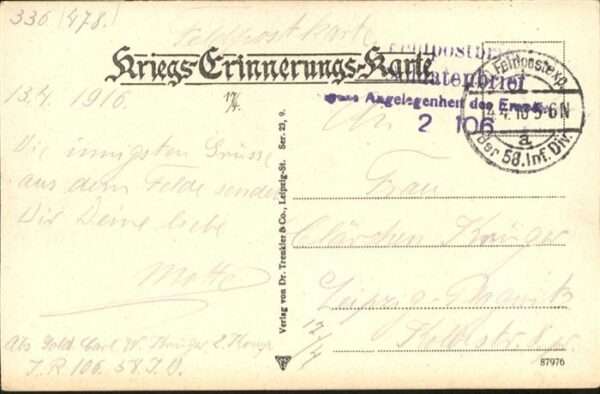 336 (478.)
Feldpostkarte
Kriegs-Erinnerungs-Karte
Feldpostbrief
Soldatenbrief
Angelegenheit des Empf.
2 106
Feldpostexp.
4.16 5-6N
a
der 58. Inf. Div.
13.4. 1916.
17/4.
Die innigsten Grüsse
aus dem Felde sendet
Dir Deine liebe
An
Frau
Clärchen Krüger
Leipzig-
17/4
Abs. Sold. Carl W. Krüger 2 Komp
I.R 106. 58 I.D.
Verlag von Dr. Trenkler & Co., Leipzig-St. Ser. 23, 9.
87976